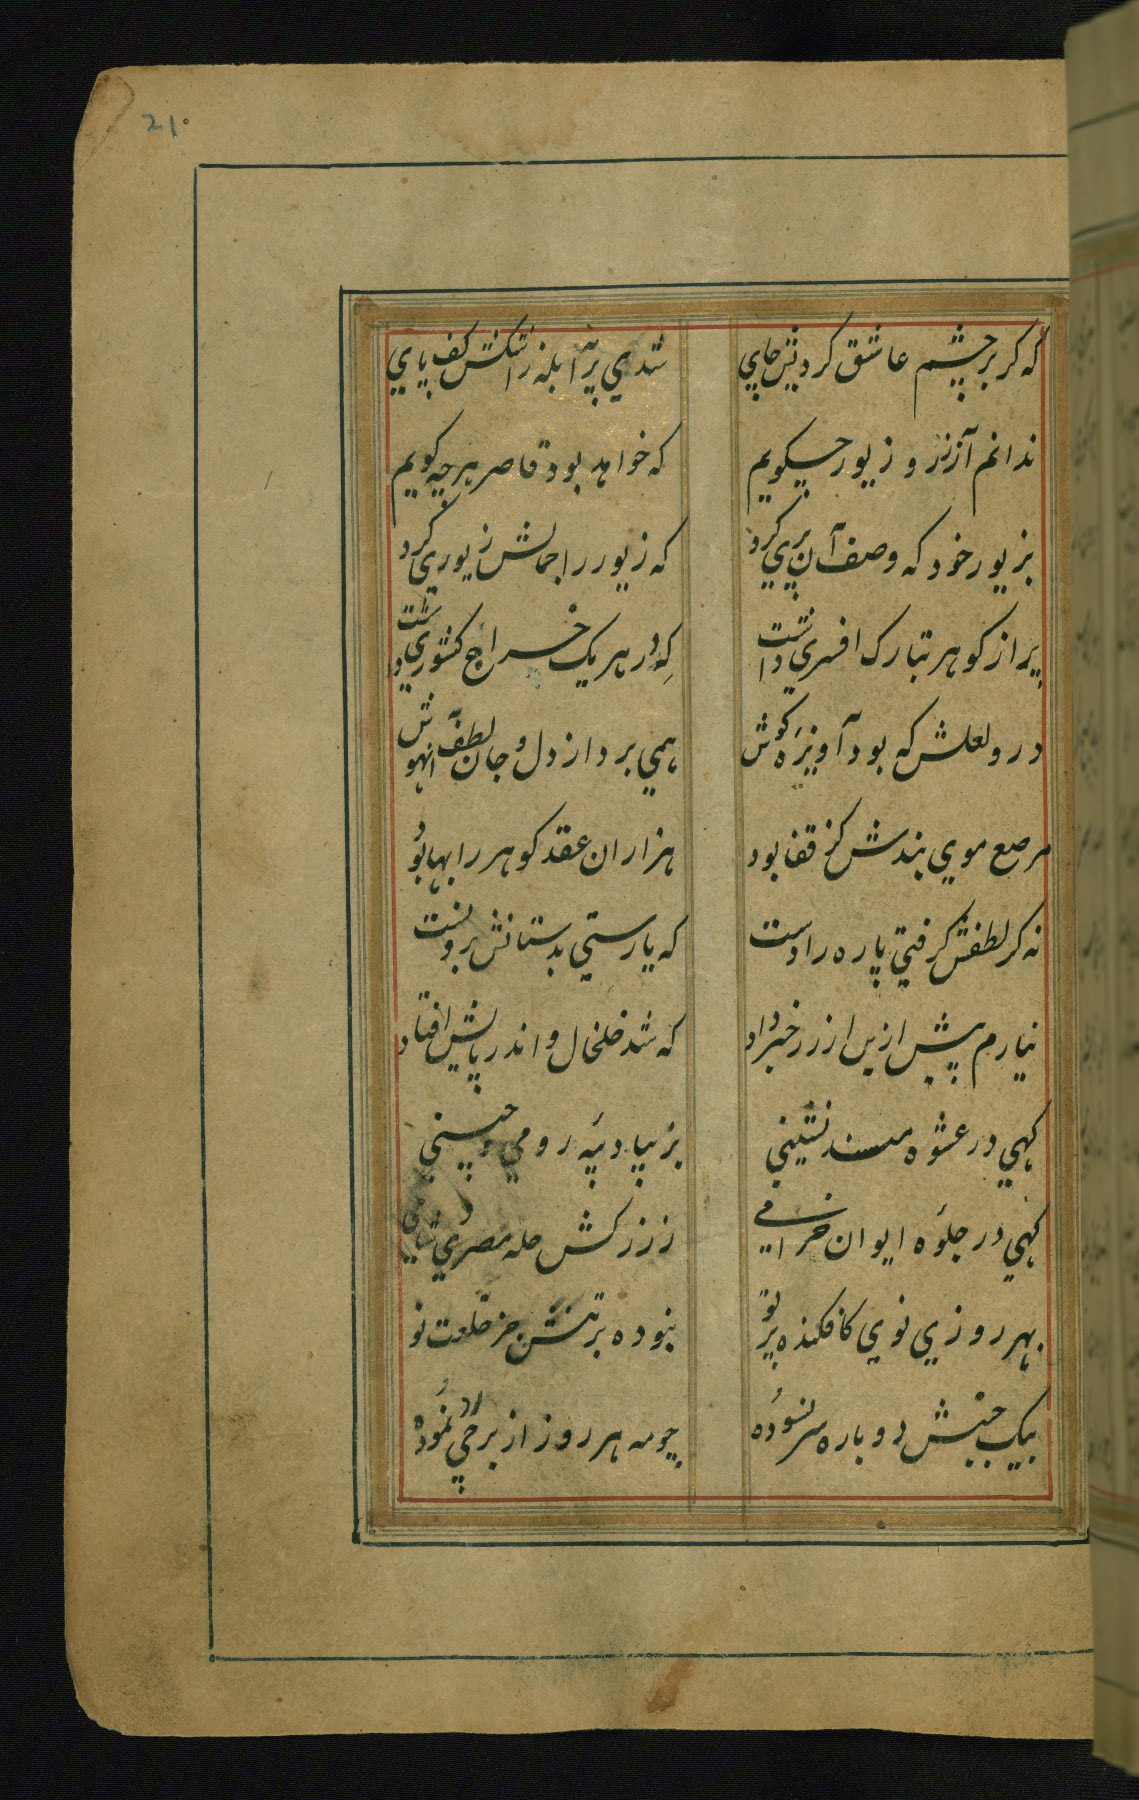 21
که کر بر چشم عاشق کردیش جای شدی پر آبله ز اشکش کف پای
ندانم از زر و زیور چیکویم که خواهد بود قاصر هر چه کویم
بزیور خود که وصف آن پری کرد که زیور را جمالش زیوری کرد
پر از کوهر بتارک افسری داشت که در هر یک خراج کشوری داشت
در و لعلش که بود آویزه کوش همی برد از دل و جان لطف آنهوش
مرصع موی بندش کز قفا بود هزاران عقد کوهر را بها بود
نه کر لطفش کرفتی پاره را دست که یارستی بدستانش برو بست
نیارم پیش ازین از زر خبر داد که شد خلخال و اندر پایش افتاد
کهی در عشوه مسند نشینی بزیبا دیبه رومی و چینی
کهی در جلوه ایوان خرامی ز زرکش حله مصری شامی
بهر روزی نوی کافکنده پرتو نبوده بر تنش جز خلعت نو
بیک جنبش دوباره سر نسوده چو مه هر روز از برجی نموده